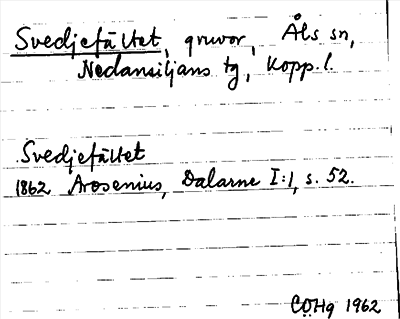 Svedjefältet, gruvor, Åls sn,
Nedansiljans tg, Kopp. l.
Svedjefältet
1862 Arosenius, Dalarne I:1, s. 52.
CÖHg 1962